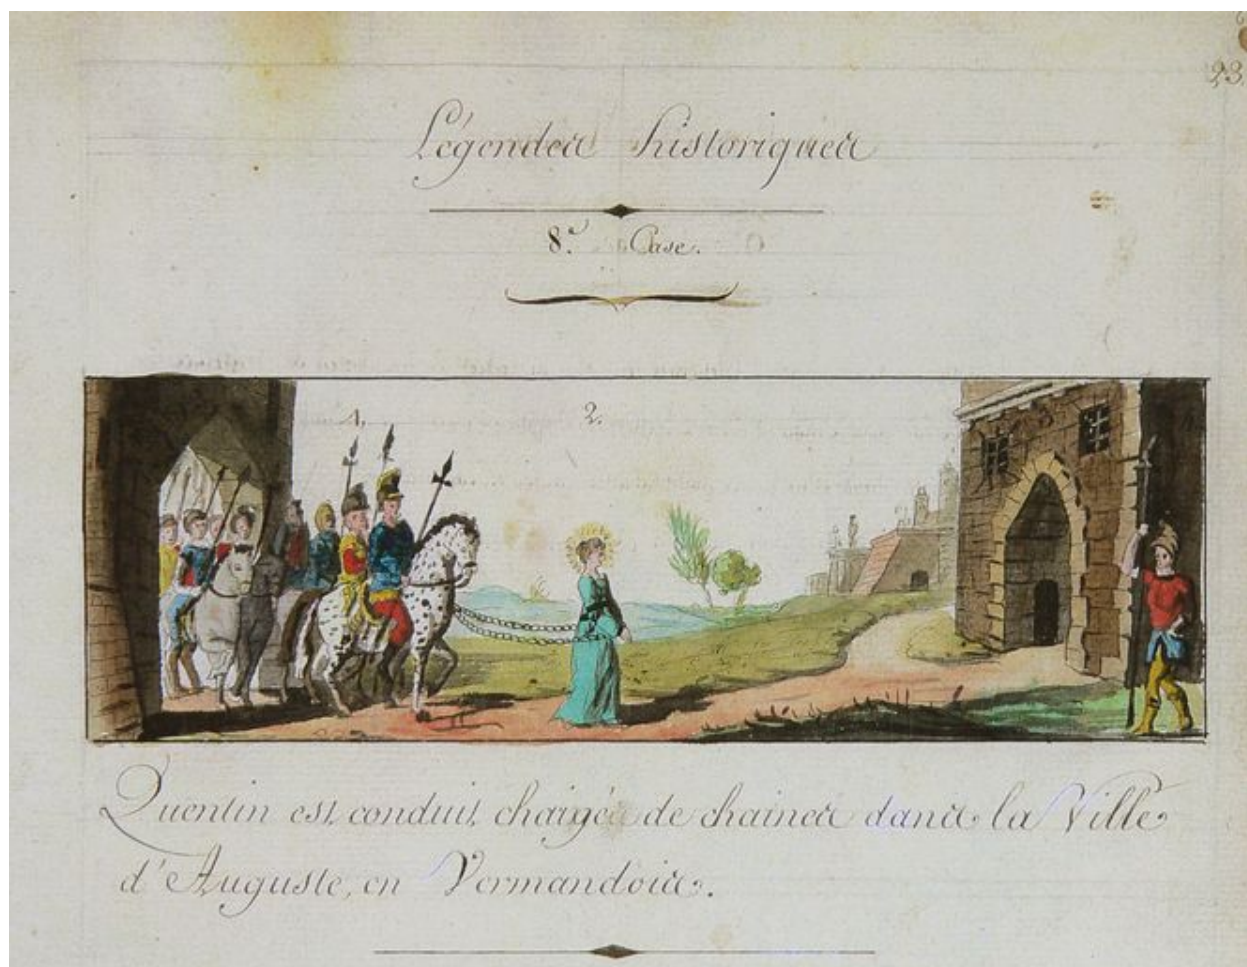 23.
Légendes historiques
8.e Case.
1. 2. 3
Quentin est conduit, chargé de chaines dans la Ville
d'Auguste, en Vermandois.